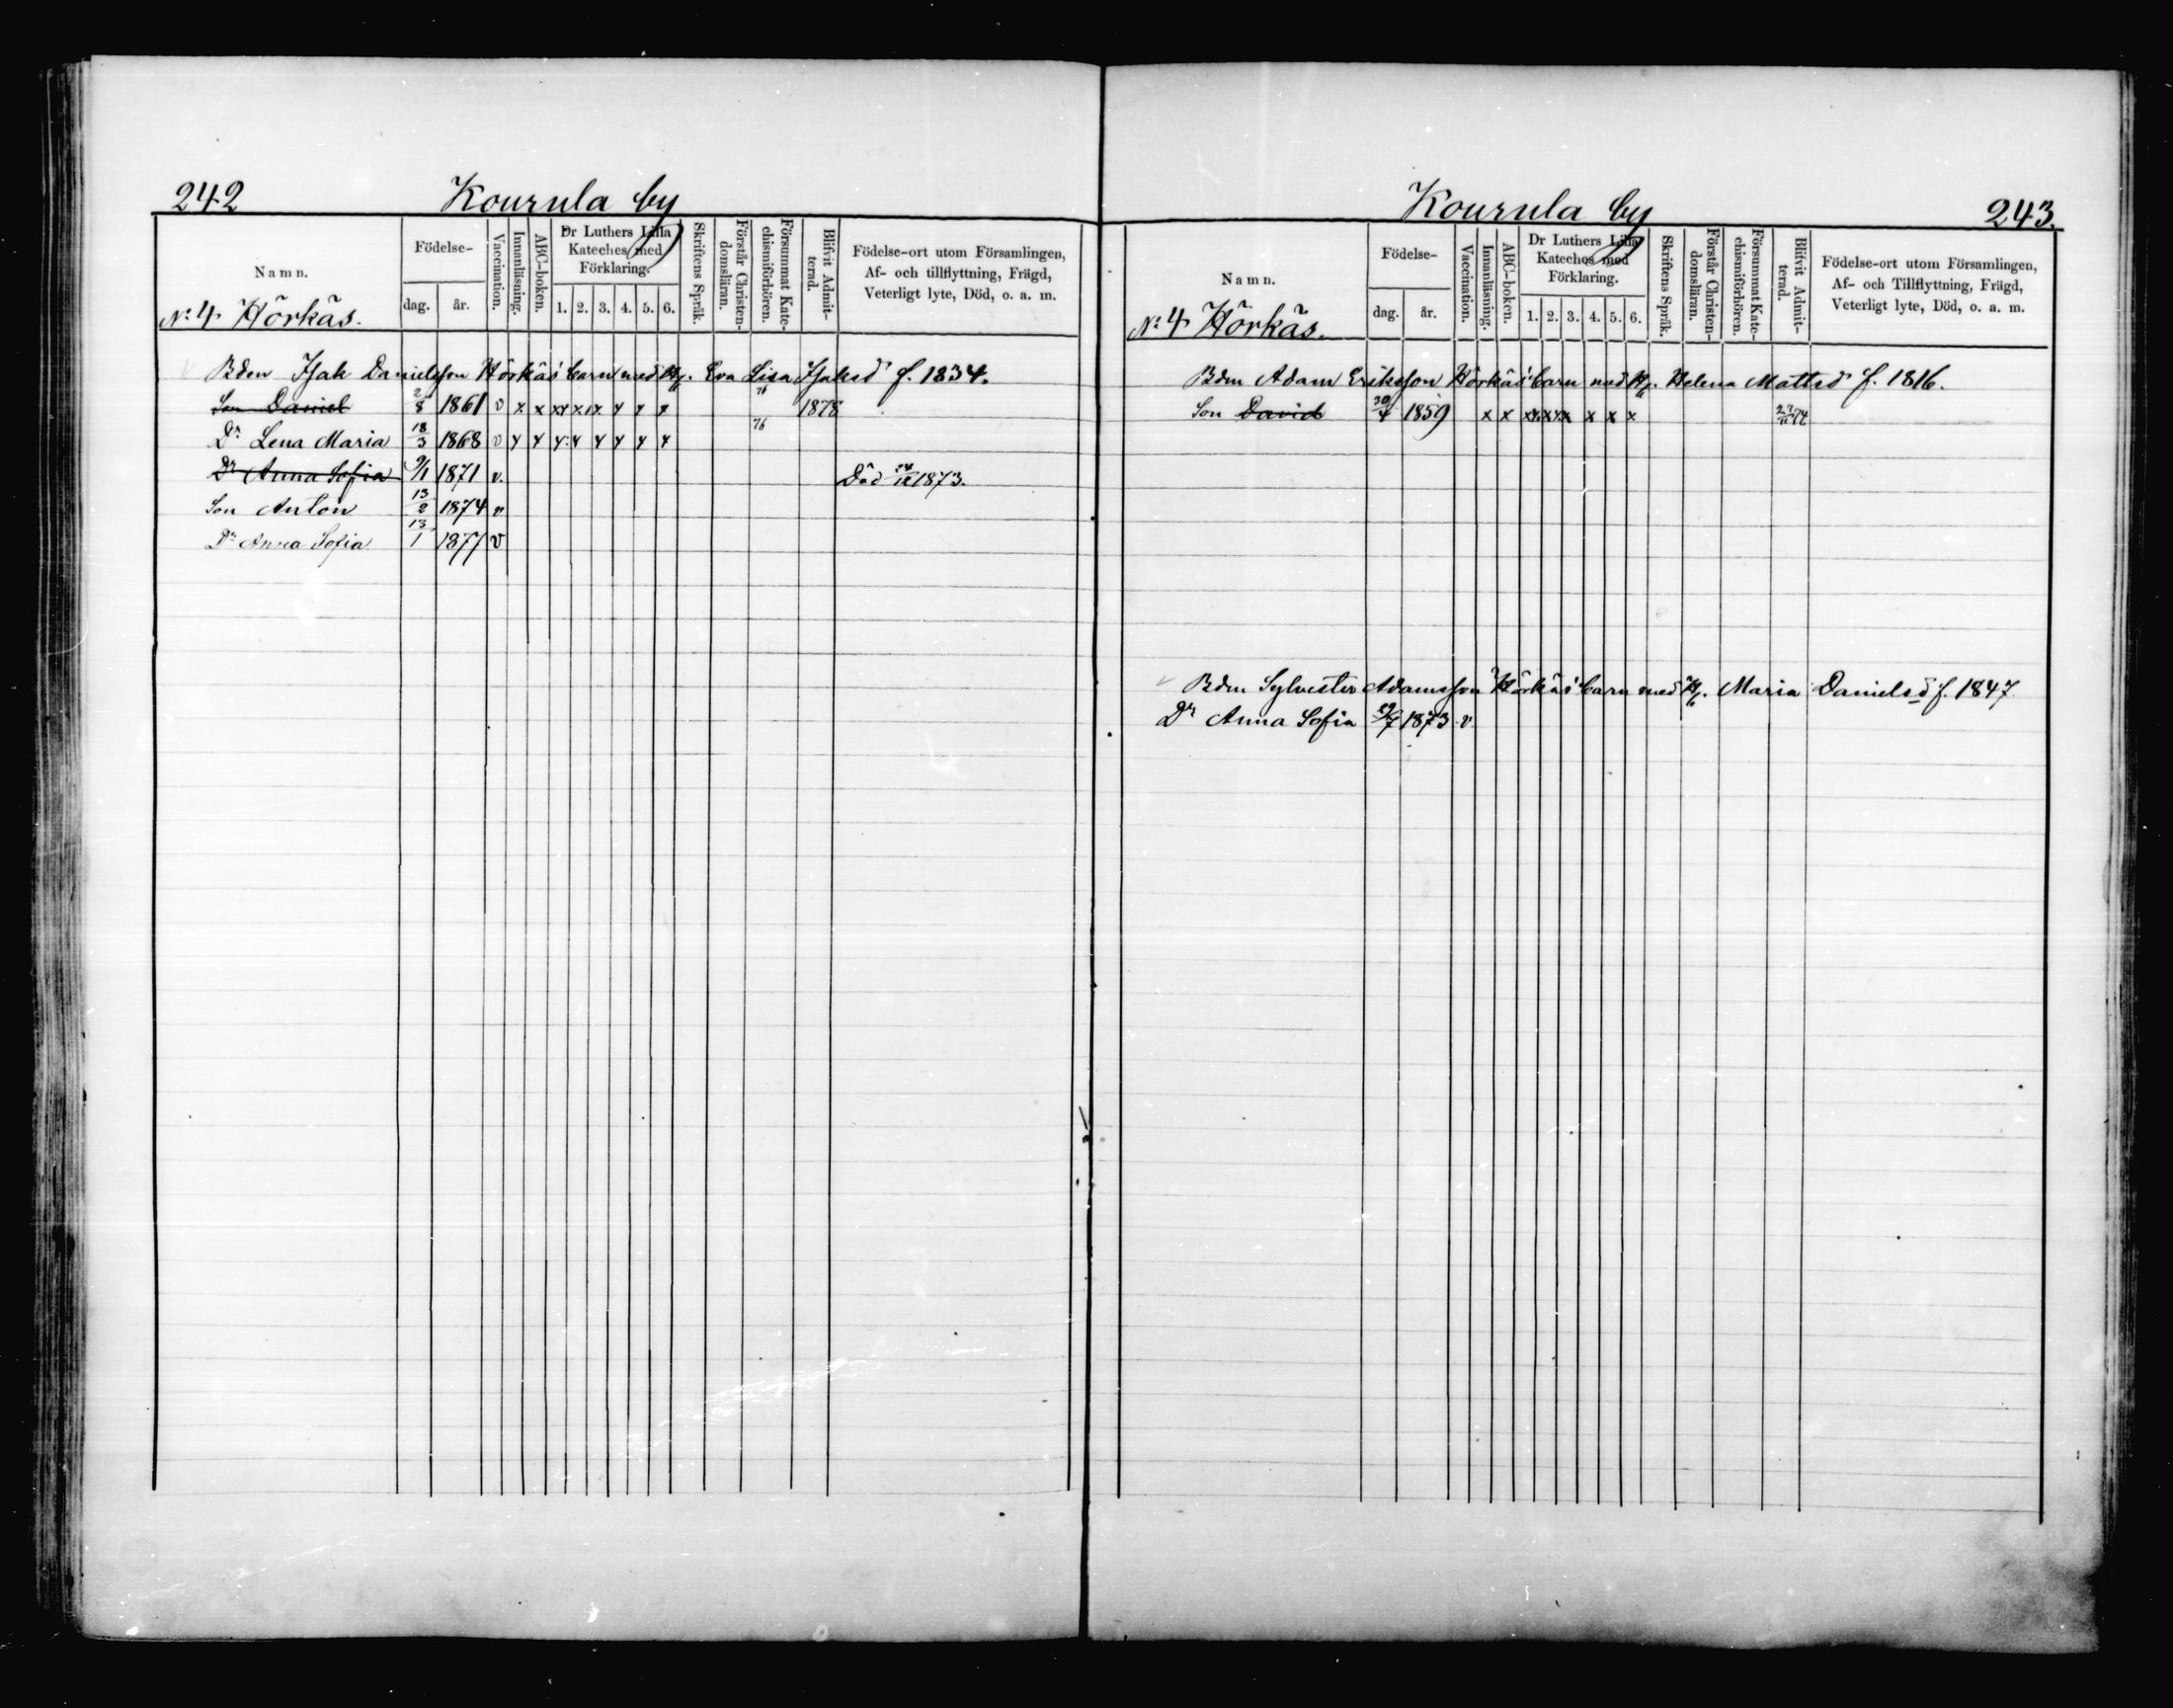 242 Kourula by
Namn. Födelse- dag. år. Vaccination. Innanläsning. ABC-boken. Dr Luthers Lilla Kateches med Förklaring. 1. 2. 3. 4. 5. 6. Skriftens Språk. Förstår Christendomsläran. Försummat Katechismiförhören. Blifvit Admitterad. Födelse-ort utom Församlingen, Af- och tillflyttning, Frägd, Veterligt lyte, Död, o. a. m.
No 4 Hörkäs.
Bden Isak Danielsson Hörkäs' barn med Hu. Eva Lisa Isaksd f. 1834.
Son Daniel 1861 v x x x x x x x x 76 1878
Dr Lena Maria 18/3 1868 v x x x x x x x x 76
Dr Anna Sofia 9/1 1871 v. Död 1873.
Son Anton 13/2 1874 v
Dr Anna Sofia 13/1 1877 v
Kourula by 243.
Namn. Födelse- dag. år. Vaccination. Innanläsning. ABC-boken. Dr Luthers Lilla Kateches med Förklaring. 1. 2. 3. 4. 5. 6. Skriftens Språk. Förstår Christendomsläran. Försummat Katechismiförhören. Blifvit Admitterad. Födelse-ort utom Församlingen, Af- och Tillflyttning, Frägd, Veterligt lyte, Död, o. a. m.
No 4 Hörkäs.
Bdn Adam Eriksson Hörkäs' barn med Hu. Helena Mattsd f. 1816.
Son David 1859 x x x x x x x x
Bdn Sylvester Adamsson Hörkäs' barn med Hu. Maria Danielsd f. 1847
Dr Anna Sofia 29/7 1873 v.